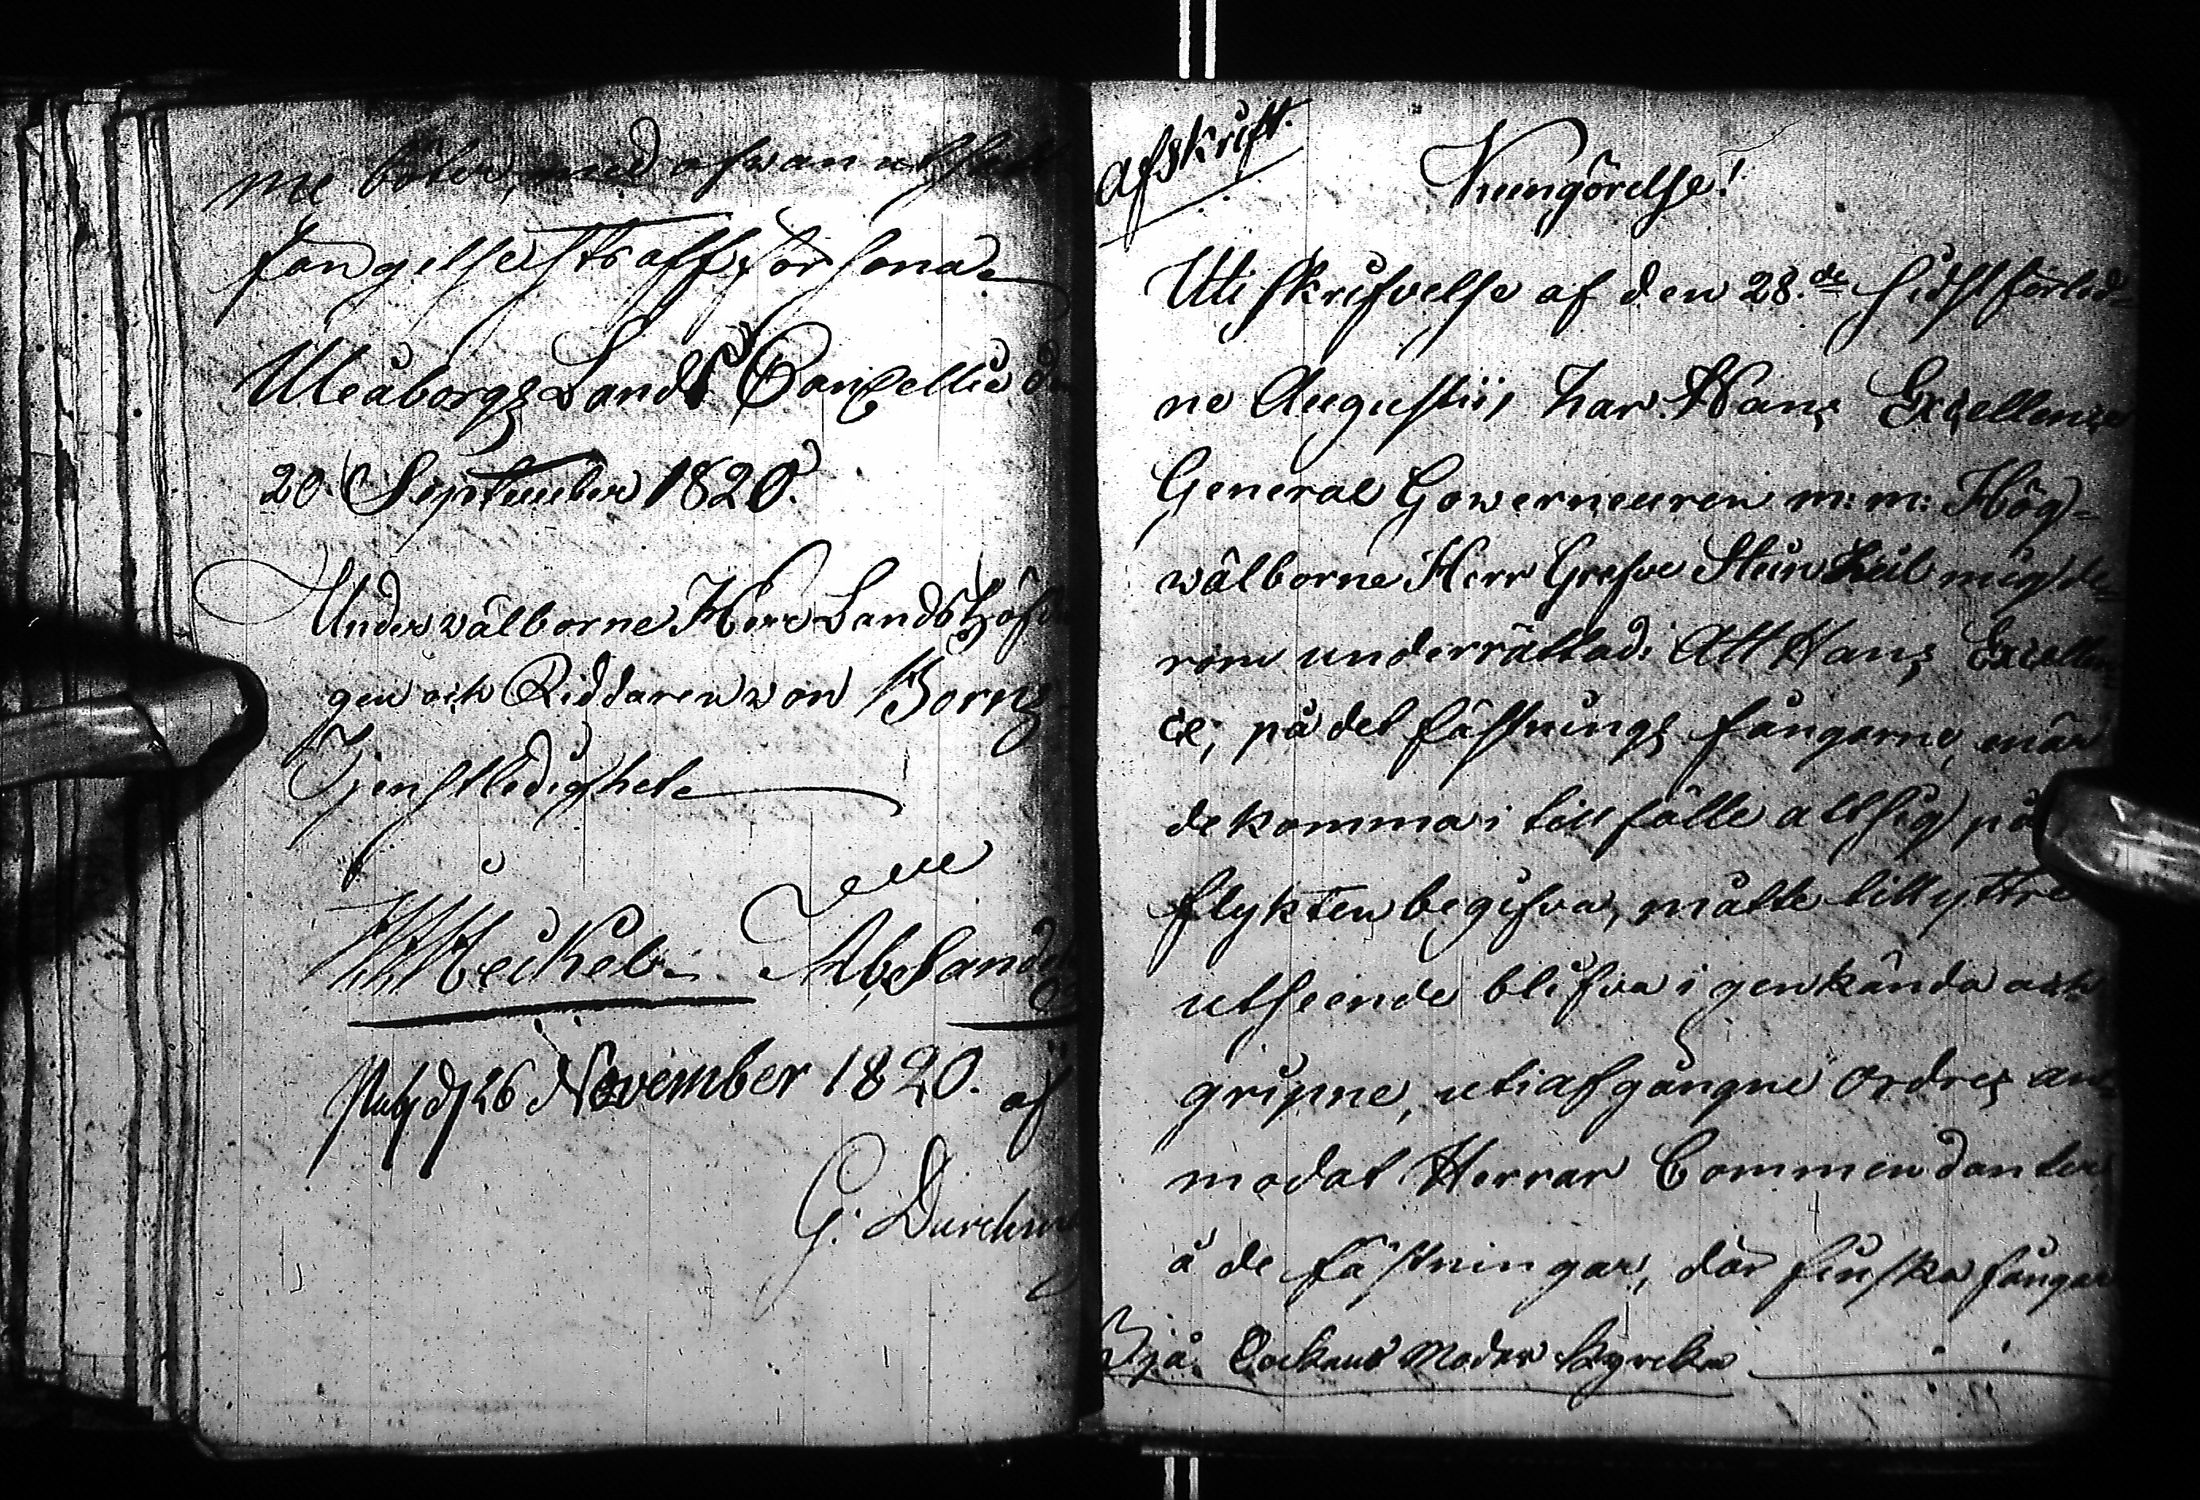 me böter, med ofwan utsatt
fängelse straff försona.
Uleåborgs Lands Cancellie den
20. September 1820.
Under wälborne Herr Landshöfdin
gen och Riddaren von Borns
Tjenstledighet.
Jem
Ab. Sand
Publ d 26 November 1820. af
G. Durchm
Afskrift.
Kungörelse!
Uti skrifvelse af den 28.de sidstförled-
ne Augustii, har Hans Excellence
General Gowerneuren m: m: Hög-
wälborne Herr Grefve Steinheil mig de-
rom underrättad: Att Hans Excellen-
ce, på det fästnings fångarne, när
de komma i tillfälle att sig på
flykten begifva, måtte till yttre
utseende blifva igenkända och
gripne, uti afgångne Ordres an-
modat Herrar Commendanter
å de fästningar, där finska fångar
Moder kyrcka